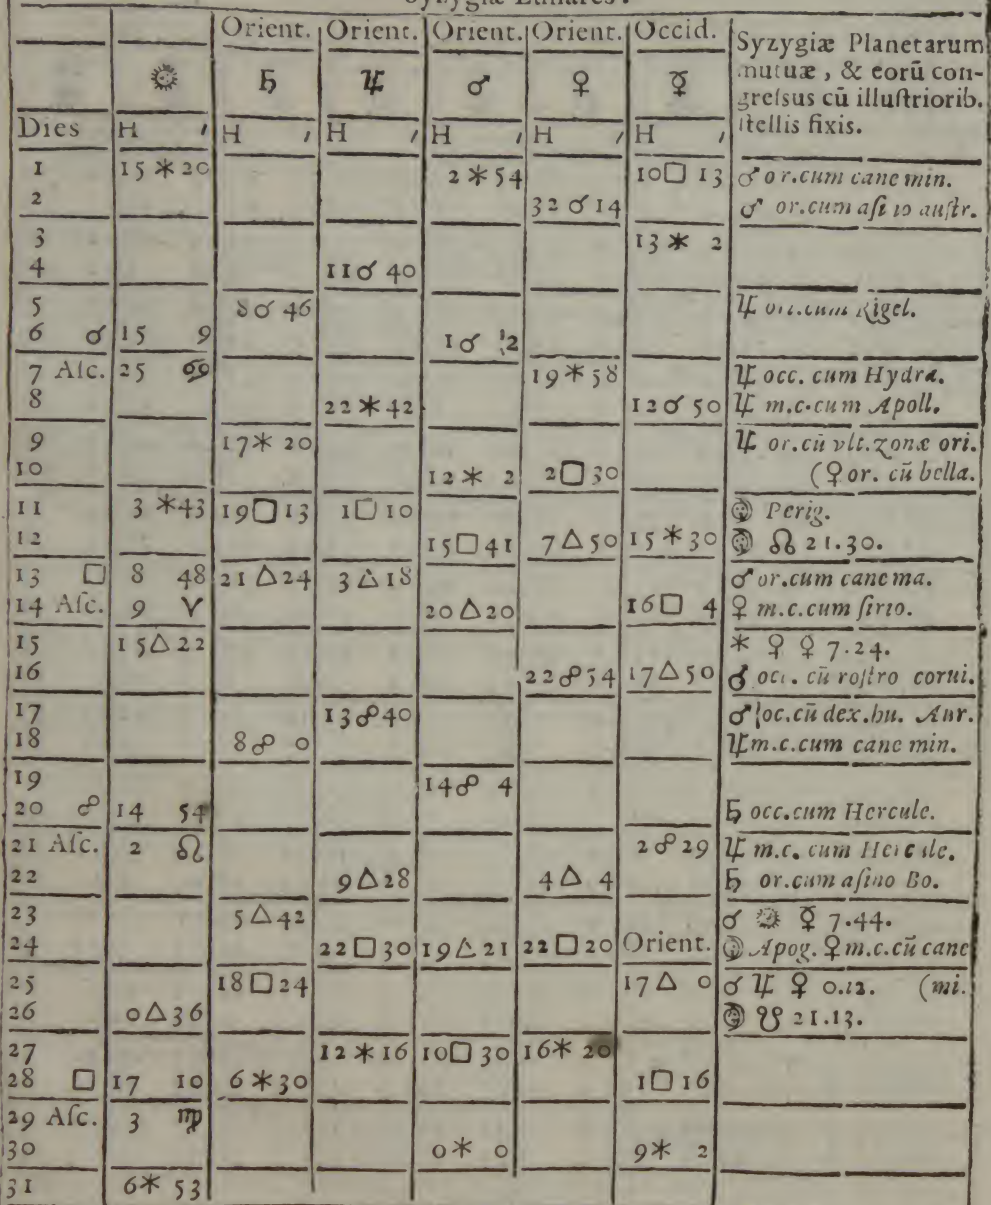 Syzygiæ Lunares.
Orient. Orient. Orient. Orient. Occid. Syzygiæ Planetarum
☉ ♄ ♃ ♂ ♀ ☿ mutuæ, & eorũ con-
greſsus cũ illuſtriorib.
Dies H ′ H ′ H ′ H ′ H ′ H ′ ſtellis fixis.
1 15 ✶ 20 2 ✶ 54 10 □ 13 ♂ or.cum cane min.
2 32 ☌ 14 ♂ or.cum auſtr.
3 13 ✶ 2
4 11 ☌ 40
5 8 ☌ 46 ♃ cum Rigel.
6 ☌ 15 9 1 ☌ 2
7 Aſc. 25 ♋ 19 ✶ 58 ♃ occ. cum Hydra.
8 22 ✶ 42 12 ☌ 50 ♃ m.c.cum Apoll.
9 17 ✶ 20 ♃ or.cũ vlt.zonæ ori.
10 12 ✶ 2 2 □ 30 (♀ or. cũ bella.
11 3 ✶ 43 19 □ 13 1 □ 10 ☽ Perig.
12 15 □ 41 7 △ 50 15 ✶ 30 ☽ ☊ 21.30.
13 □ 8 48 21 △ 24 3 △ 18 ♂ or.cum cane ma.
14 Aſc. 9 ♈ 20 △ 20 16 □ 4 ♀ m.c.cum ſirio.
15 15 △ 22 ✶ ♀ ☿ 7.24.
16 22 ☍ 54 17 △ 50 ♂ occ. cũ roſtro corui.
17 13 ☍ 40 ♂ oc.cũ dex.hu. Aur.
18 8 ☍ 0 ♃ m.c.cum cane min.
19 14 ☍ 4
20 ☍ 14 54 ♄ occ.cum Hercule.
21 Aſc. 2 ♌ 2 ☍ 29 ♃ m.c. cum Hercule.
22 9 △ 28 4 △ 4 ♄ or.cum aſino Bo.
23 5 △ 42 ☌ ☉ ☿ 7.44.
24 22 □ 30 19 △ 21 22 □ 20 Orient. ☽ Apog. ♀ m.c.cũ cane
25 18 □ 24 17 △ 0 ☌ ♃ ♀ 0.12. (mi.
26 0 △ 36 ☽ ☋ 21.13.
27 12 ✶ 16 10 □ 30 16 ✶ 20
28 □ 17 10 6 ✶ 30 1 □ 16
29 Aſc. 3 ♍
30 0 ✶ 0 9 ✶ 2
31 6 ✶ 53